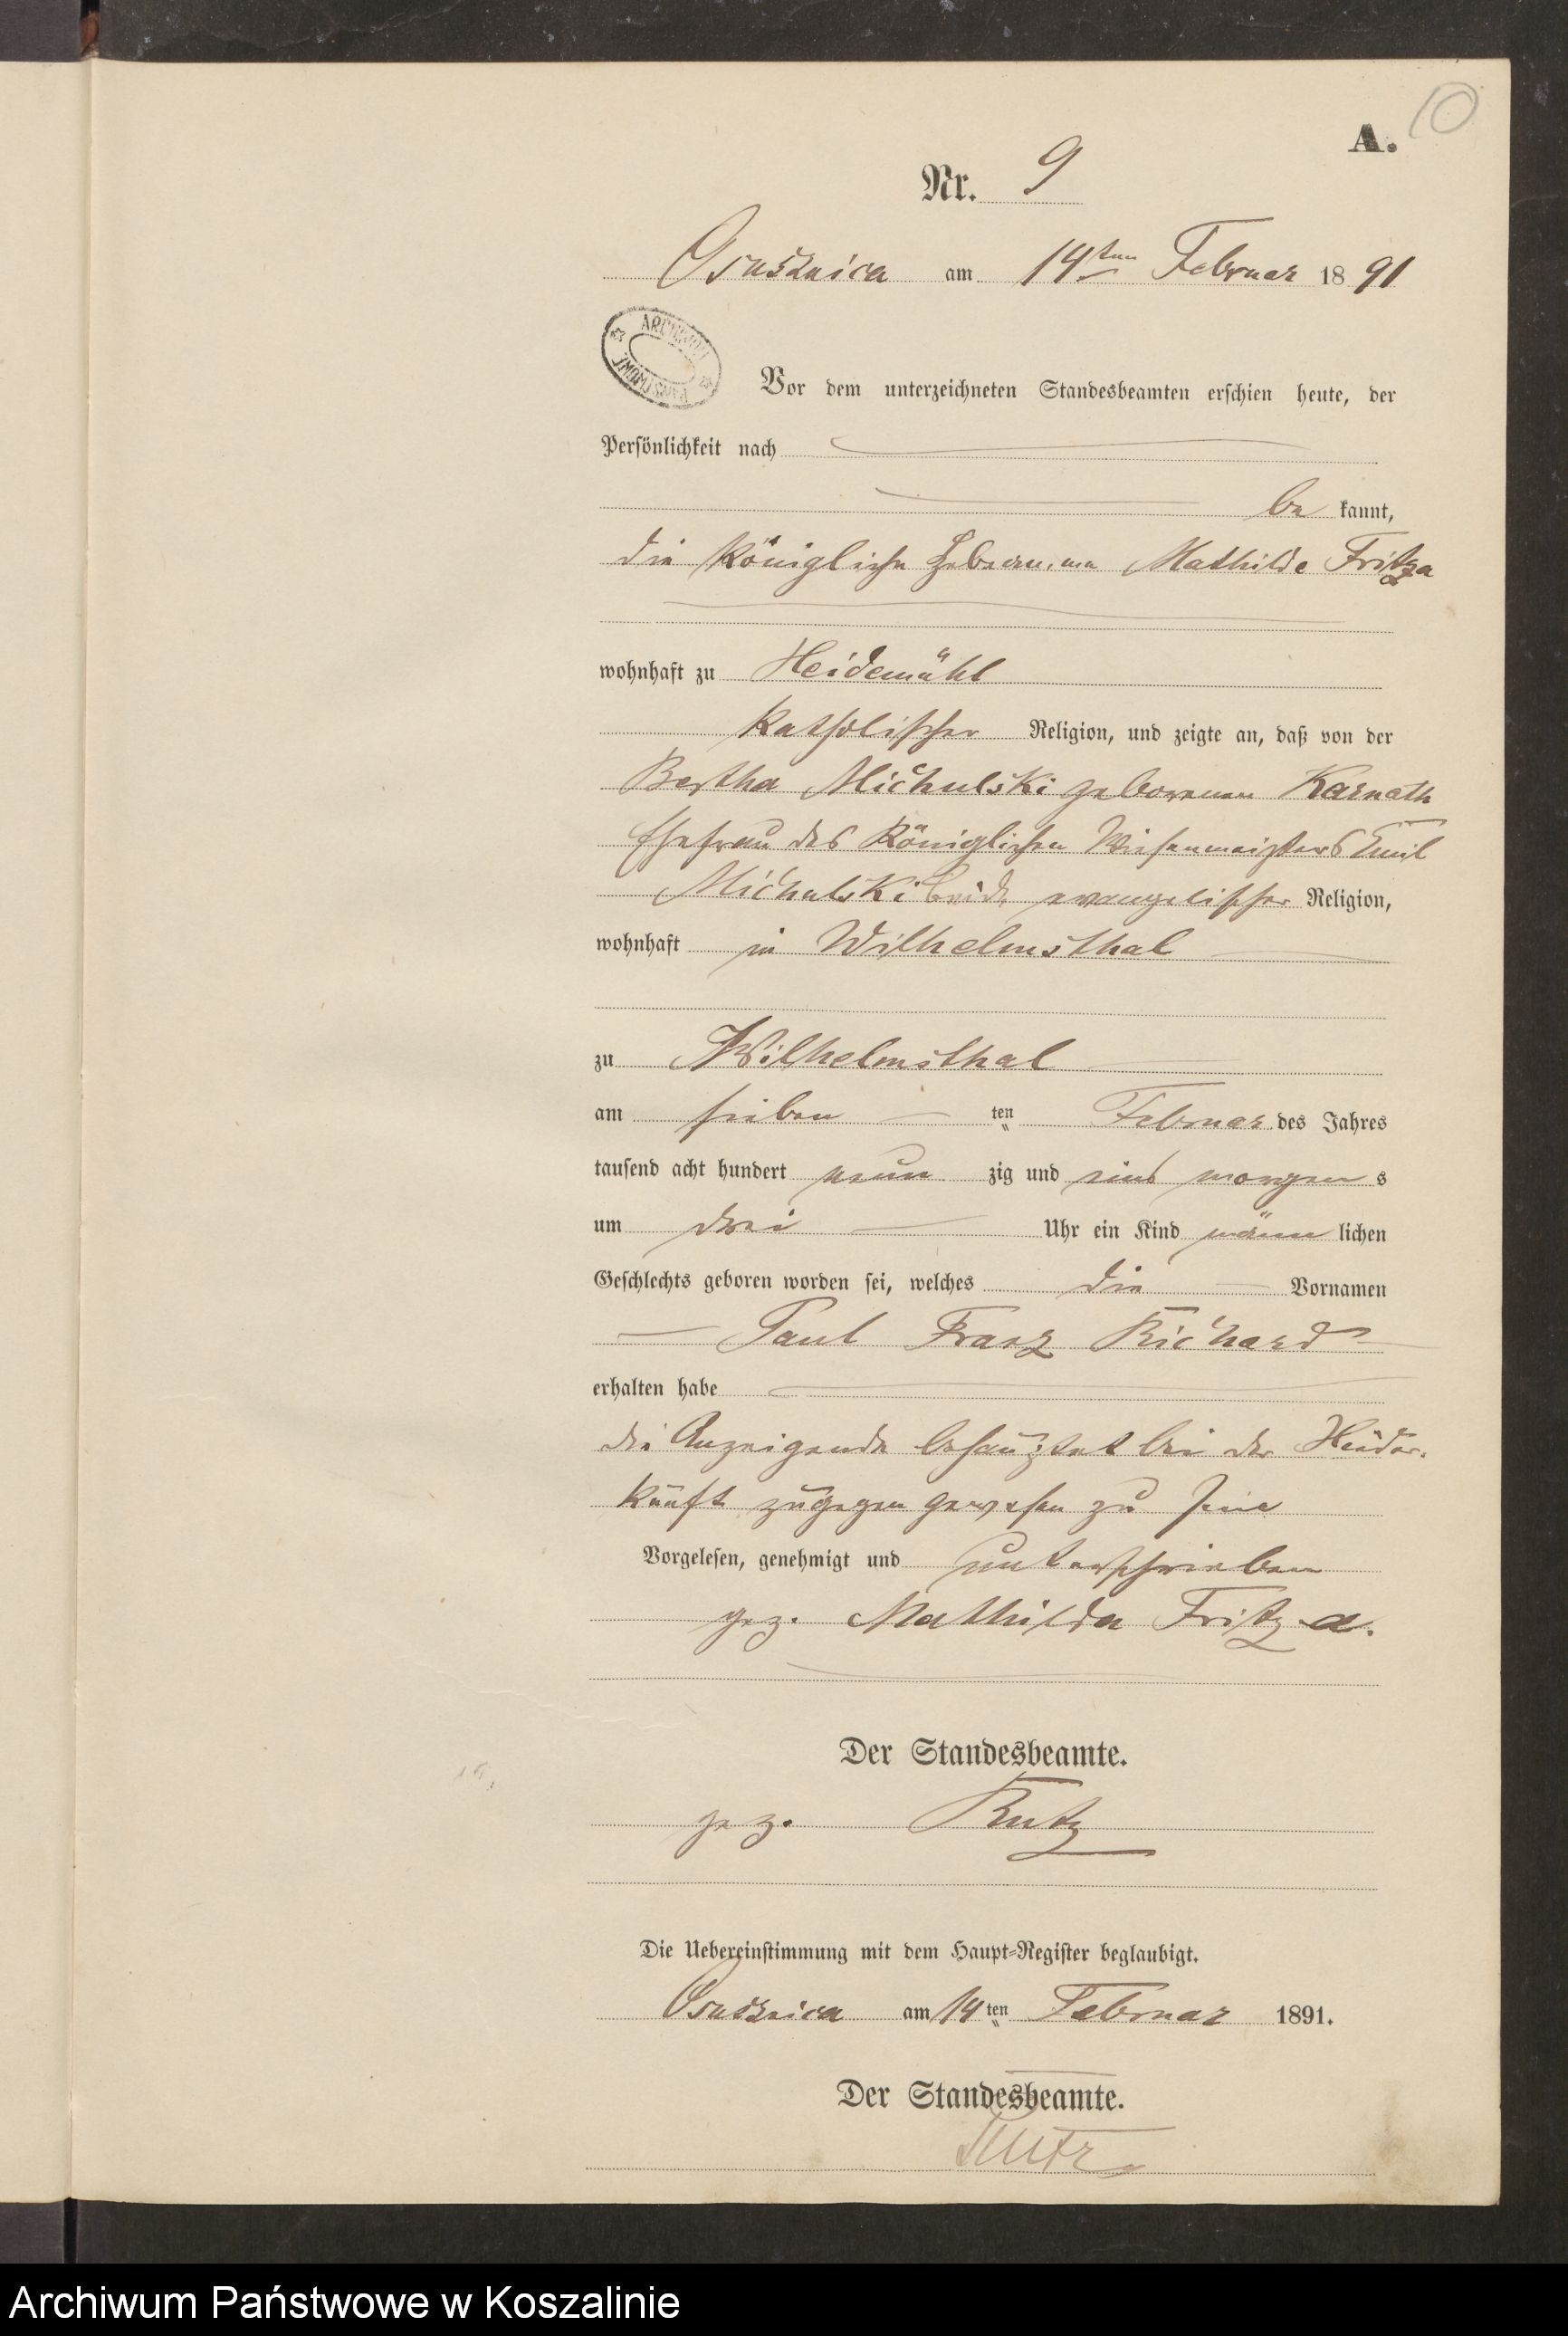 10
A.
Nr. 9
Osusznica am 14ten Februar 1891
ARCHIWUM PAŃSTWOWE
Vor dem unterzeichneten Standesbeamten erschien heute, der
Persönlichkeit nach
be kannt,
die Königliche Hebamme Mathilde Fritza
wohnhaft zu Heidemühl
katholischer Religion, und zeigte an, daß von der
Bertha Michulski geborenen Karnath
Ehefrau des Königlichen Wiesenmeisters Emil
Michulski beide evangelischer Religion,
wohnhaft in Wilhelmsthal
zu Wilhelmsthal
am sieben ten Februar des Jahres
tausend acht hundert neun zig und eins morgen s
um drei Uhr ein Kind männ lichen
Geschlechts geboren worden sei, welches die Vornamen
Paul Franz Richard
erhalten habe
die Anzeigende behauptet bei der Nieder-
kunft zugegen gewesen zu sein
Vorgelesen, genehmigt und unterschrieben
gez. Mathilda Fritza.
Der Standesbeamte.
gez. Rutz
Die Uebereinstimmung mit dem Haupt-Register beglaubigt.
Osusznica am 14ten Februar 1891.
Der Standesbeamte.
Rutz
Archiwum Państwowe w Koszalinie